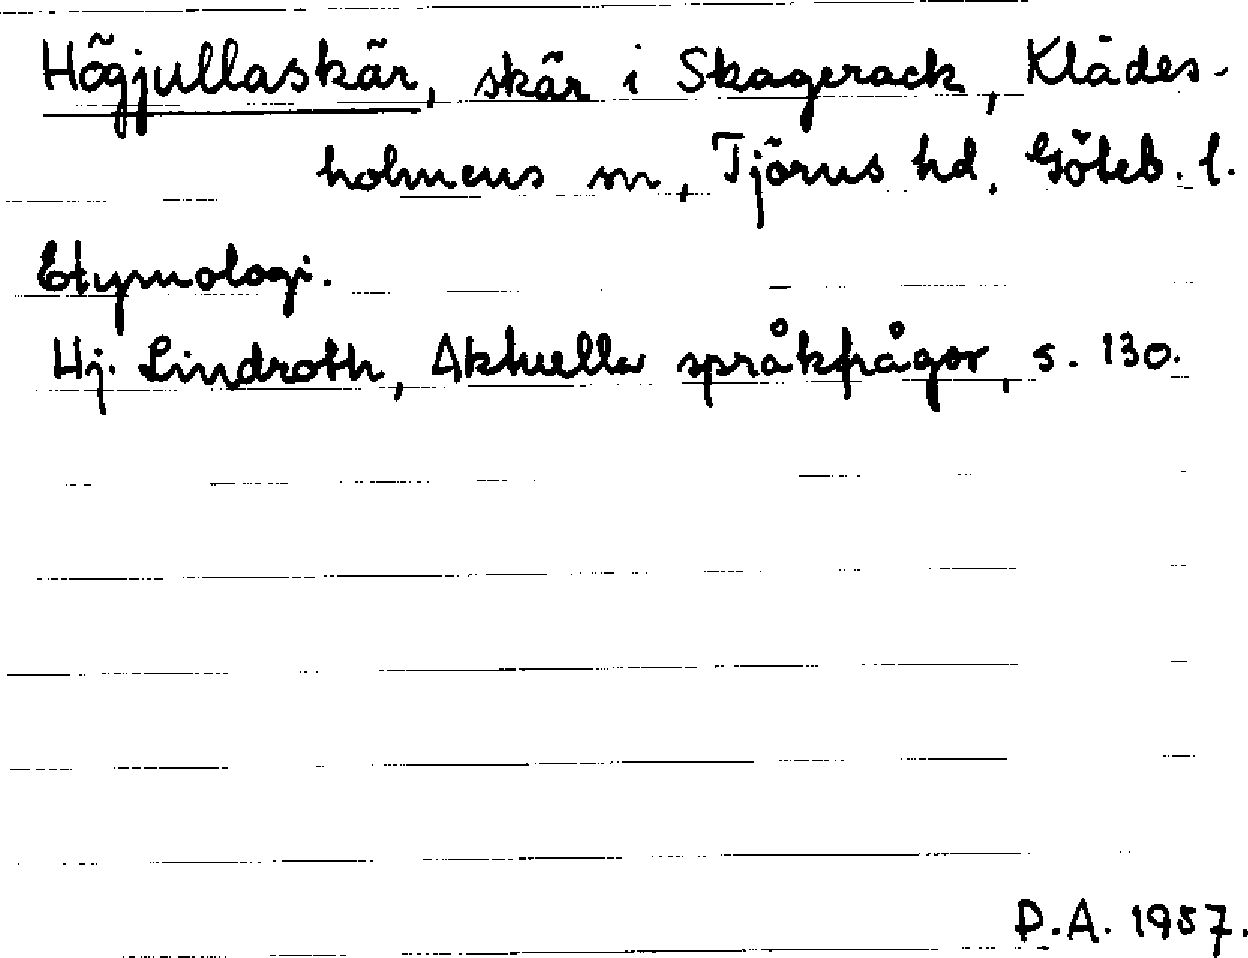 Högjullaskär, skär i Skagerack, Klädes-
holmens sn, Tjörns hd, Göteb. l.
Etymologi.
Hj. Lindroth, Aktuella språkfrågor, s. 130.
D.A. 1957.